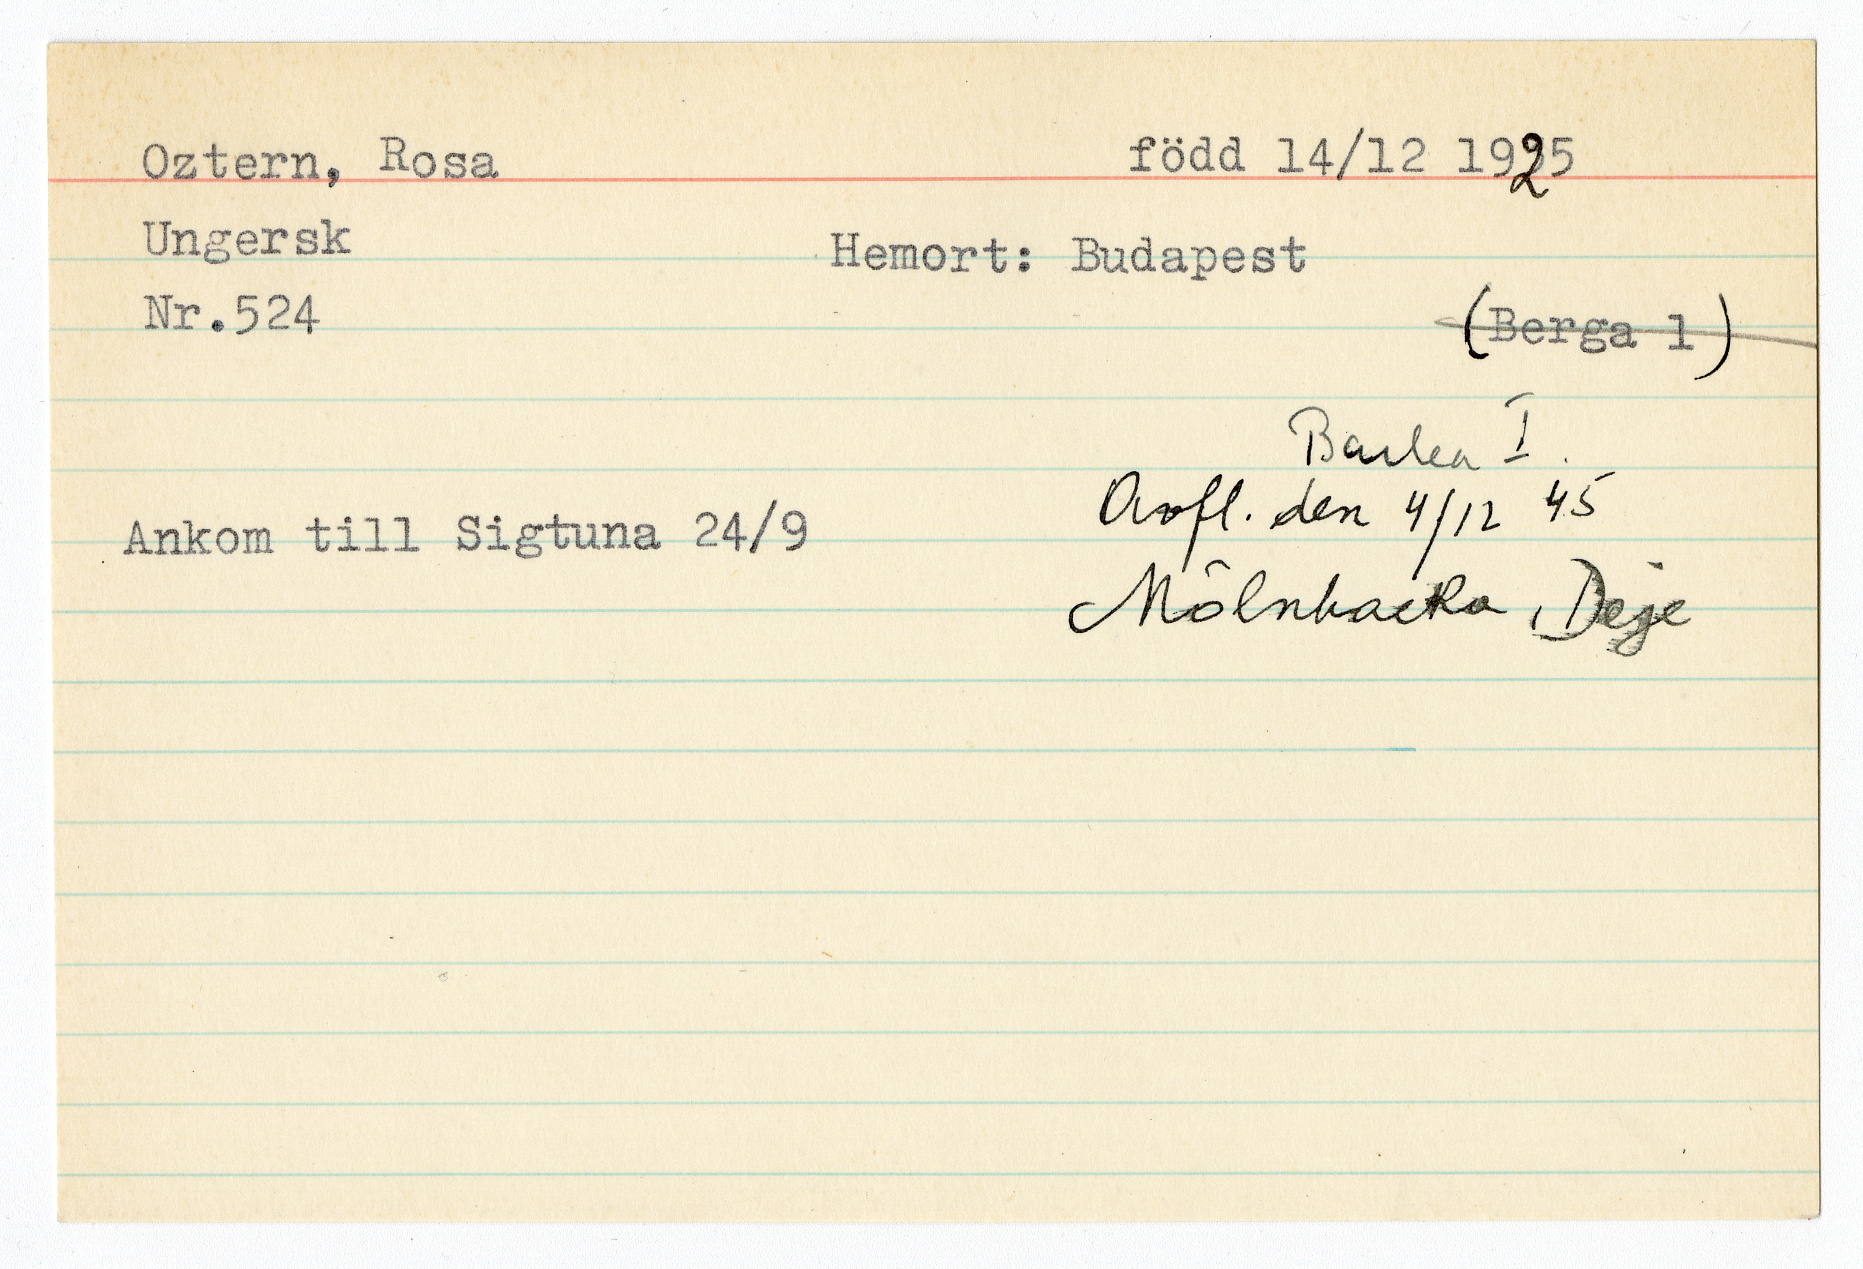 Oztern, Rosa född 14/12 1925
Ungersk
Hemort: Budapest
Nr.524
(Berga 1)
I.
Ankom till Sigtuna 24/9
den 4/12 45
Mölnbacka, Deje